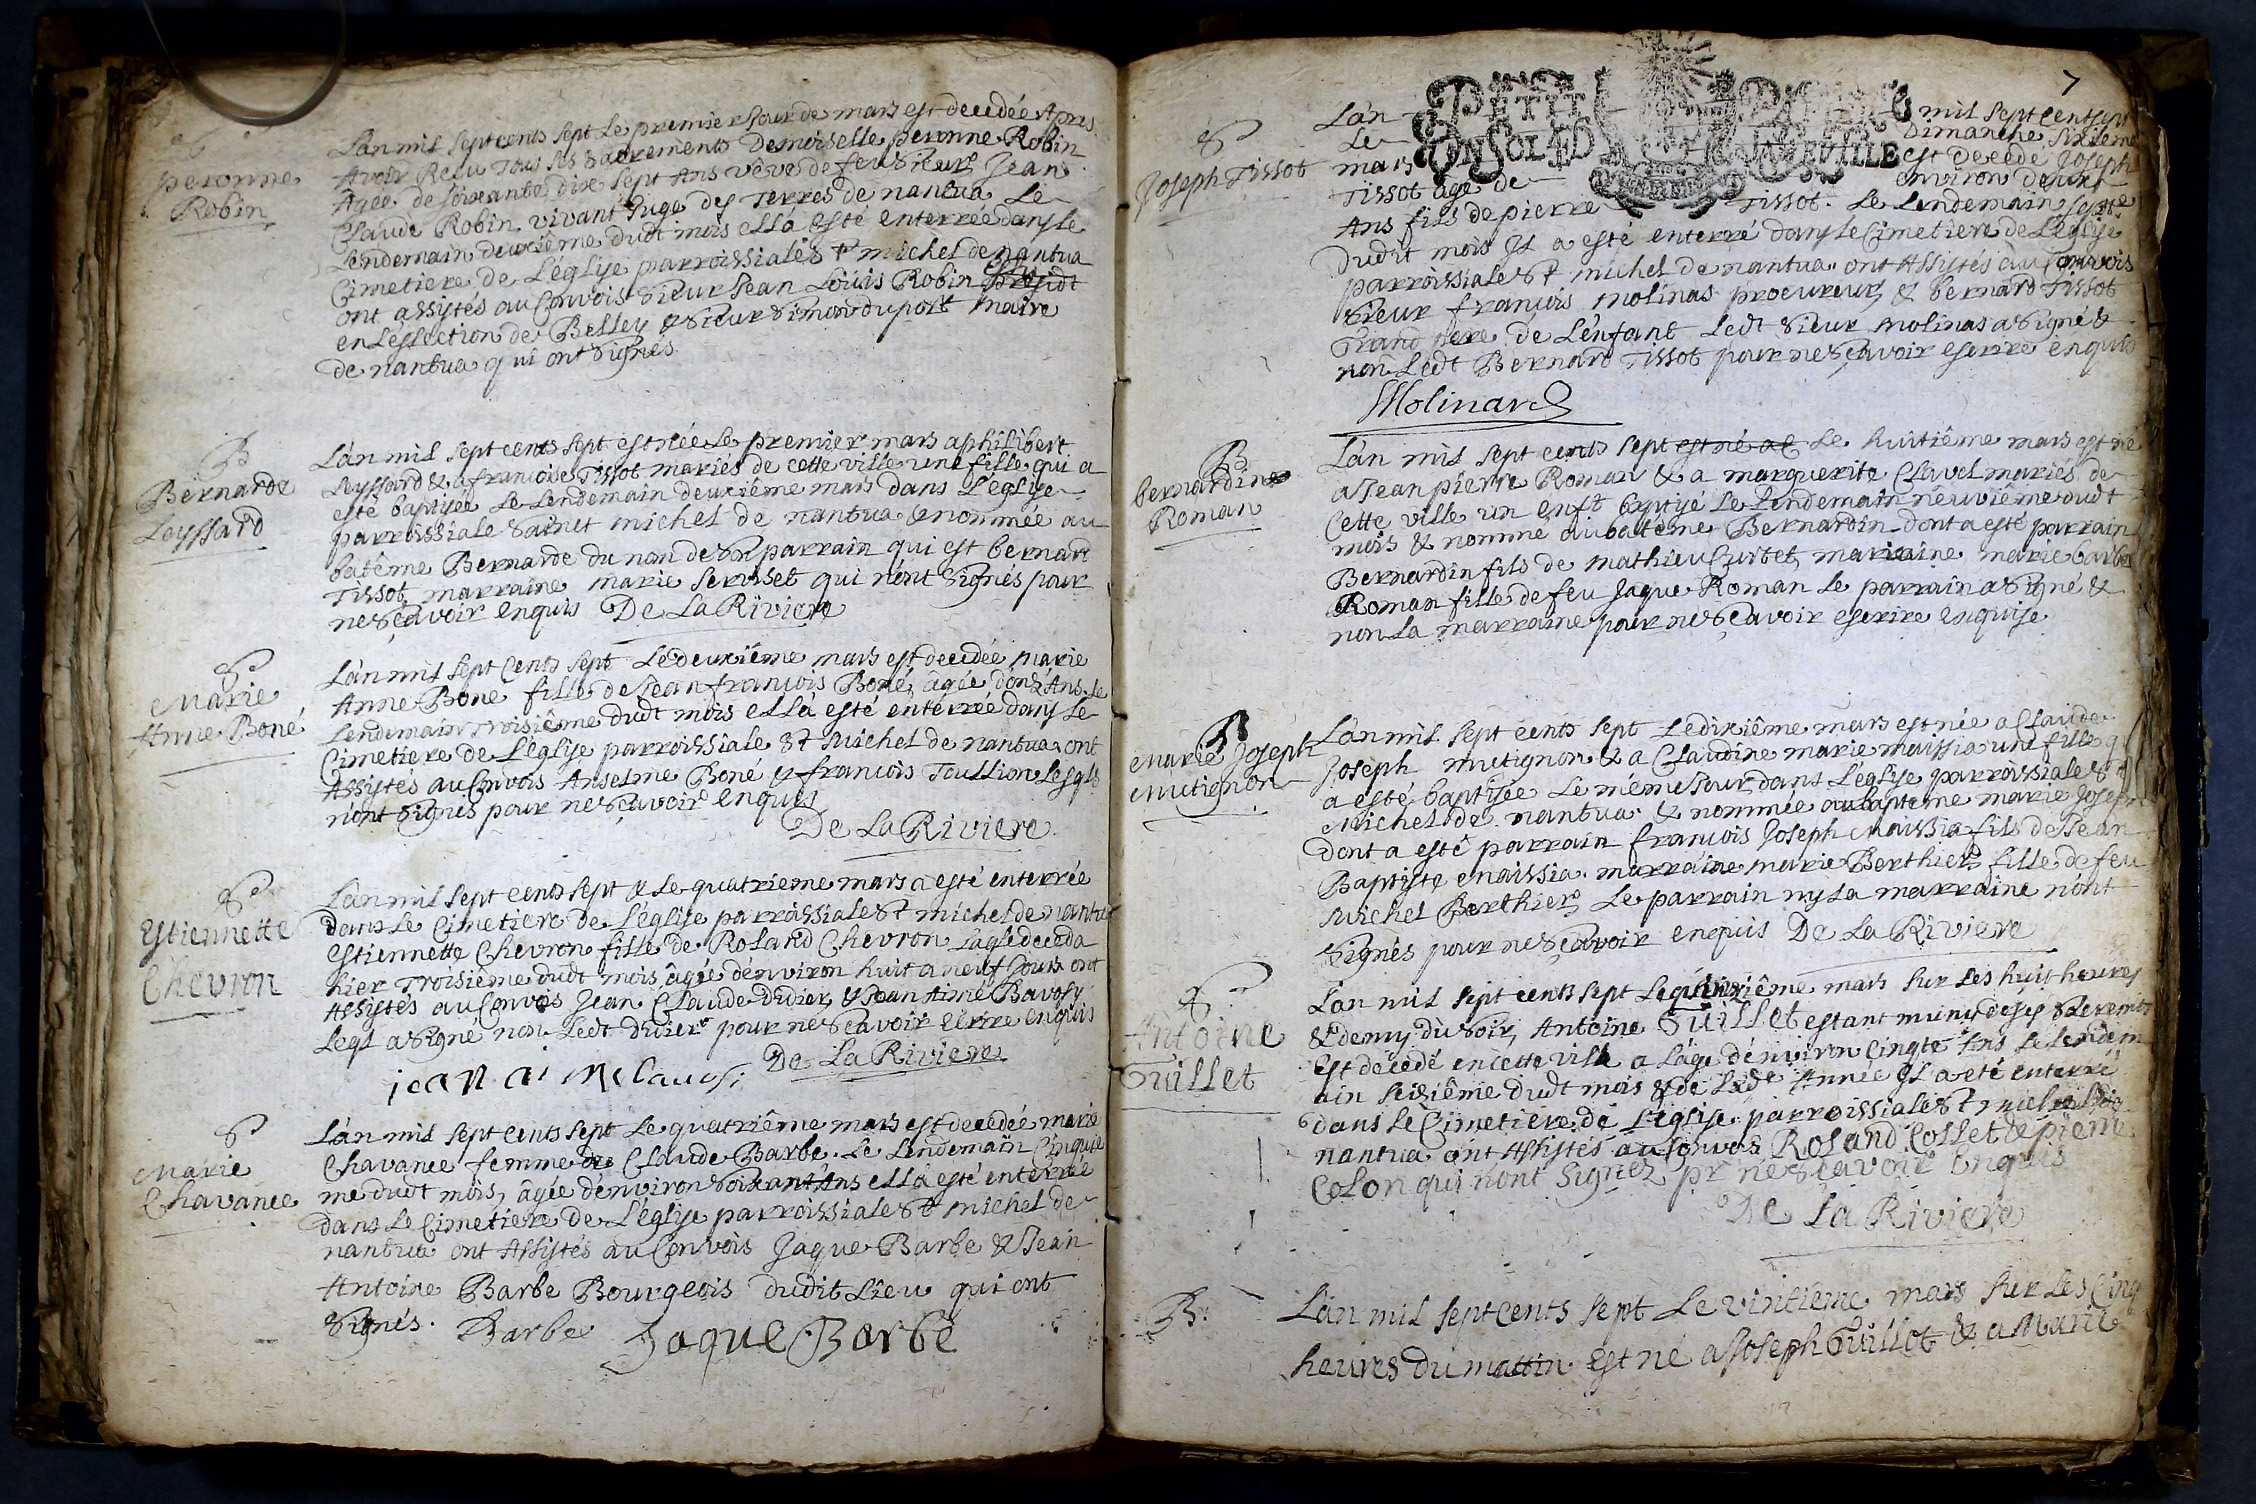 S
peronne
Robin
L'an mil sept cents sept Le premier Jour de mars est decedée Apres
Avoir Receu Tous ses Sacrements Demoiselle peronne Robin
Agée de soixante dix sept Ans vêve de feu Sieur Jean
Claude Robin vivant Juge des Terres de nantua Le
Lendemain deuxiême dudt mois ell'a esté enterrée dans le
Cimetiere de L'églyse parroissialle St michel de nantua
ont assistés au Convois Sieur Jean Loüis Robin
en L'eslection de Belley & Sieur Simon duport maire
de nantua qui ont signés
B
Bernarde
Leyssard
L'an mil sept cents sept est née Le premier mars a philibert
Leyssard & a francoise Tissot mariés de cette ville une fille qui a
esté baptisée Le Lendemain deuxiême mars dans L'églyse
parroissiale Sainct michel de nantua & nommée au
batême Bernarde du nom de Son parrain qui est bernard
Tissot marraine marie Serisset qui n'ont signés pour
ne Sçavoir enquis De La Riviere
S
Marie
Anne Boné
L'an mil sept Cents sept Le deuxiême mars est decedée marie
Anne Bone fille de Jean francois Boné, âgée d'onz'Ans. Le
Lendemain Troisiême dudt mois ell'a esté enterrée dans Le
Cimetiere de L'églyse parroissiale St Michel de nantua ont
Assistés au Convois Anselme Boné & francois Toullion Lesqls
n'ont Signés pour ne Sçavoir enquis
De La Riviere
S
Estiennette
Chevron
L'an mil sept cents sept & le quatrieme mars a esté enterrée
dans Le Cimetiere de L'églyse parroissiale St michel de nantua
Estiennette Chevron fille de Roland Chevron Laqle deceda
hier Troisiême dudt mois âgée d'environ huit a neuf Jours ont
Assistés au Convois Jean Claude Didier & Jean Aimé Bavosy
Leql a signé non Ledt Didier pour ne Sçavoir écrire enquis
jean aime Bavosi De La Riviere
S
Marie
Chavanee
L'an mil sept cents sept Le quatriême mars est decedée marie
Chavanee femme de Claude Barbe. Le Lendemain Cinquiê
me dudt mois, âgée d'environ Soixant'Ans ell'a esté enterrée
dans Le Cimetiere de L'églyse parroissiale St michel de
nantua ont Assistés au Convois Jaque Barbe & Jean
Antoine Barbe Bourgeois dudit Lieu qui ont
Signés. Barbe Jaque Barbe
7
PETIT PAPIER
CONSOLED UNEVILLE
S
Joseph Tissot
L'an mil sept cent sept
Le Dimanche sixieme
mars est decedé Joseph
Tissot âgé de environ deux
Ans fils de pierre Tissot. Le Lendemain septe
dudit mois Jl a esté enterré dans le Cimetiere de L'églyse
parroissiale St michel de nantua ont Assistés au Convois
Sieur francois Molinas procureur, & bernard Tissot
Grand pere de L'enfant Ledt Sieur Molinas a signé &
non Ledt Bernard Tissot pour ne Sçavoir escrire enquis
Molinard
B
bernardin
Roman
L'an mil sept cents sept est né a C Le huitiême mars est né
a Jean pierre Roman & a marguerite Clavel mariés de
Cette ville un enft baptisé Le Lendemain neuviême dudt
mois & nommé au batême Bernardin dont a esté parrain
Bernardin fils de mathieu Curtet, marraine marie barbe
Roman fille de feu Jaque Roman Le parrain a Signé &
non La marraine pour ne Sçavoir escrire enquise
B
Marie Joseph
Mutignon
L'an mil sept cents sept Le dixiême mars est née a Claude
Joseph mutignon & a Claudine marie maissia une fille q
a esté baptisée Le même Jour dans L'églyse parroissiale St
Michel de nantua & nommée au bapteme marie Joseph
dont a esté parrain francois Joseph Maissia fils de Jean
Baptiste Maissia. marraine marie Berthier fille de feu
Michel Berthier Le parrain ny La marraine n'ont
Signés pour ne Sçavoir enquis De La Riviere
S
Antoine
Guillet
L'an mil sept cents sept Le quinziême mars sur Les huit heures
& demy du Soir, Antoine Guillet estant muny de ses Sacremts
est decedé en cette ville a L'âge d'environ Cinqte Ans le Lendem
ain seiziême dudt mois & de Ladte Année Jl a eté enterré
dans le Cimetiere de L'église parroissiale St michel de
nantua ont Assistés au Convois Roland Collet & pierre
Colon qui n'ont Signez pr ne Sçavoir enquis
De La Riviere
B
L'an mil sept cents sept Le vintieme mars sur Les Cinq
heures du mattin est né a Joseph Guillot & a Marie